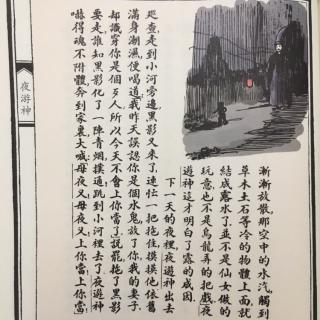 漸漸放散,那空中的水汽,觸到
草木土石等冷的物體上面,就
結成露水了,並不是仙女做的
玩意,也不是烏龍弄的把戲,夜
遊神這才明白了露的成因.
下一天的夜裡,夜遊神出去
巡查,走到小河旁邊,黑影又來了,連忙一把拖住,摸摸他依舊
滿身潮濕,便喝道,我昨天誤認你是個水鬼,放了你,我的妻子
却識穿你是個歹人,所以今天不會上你當了,說罷,拖了黑影
要走,誰知黑影化了一陣青烟,撲通,跳到小河裡去了,夜遊神
嚇得魂不附體,奔到家裏大喊,母夜叉,母夜叉,上你當,上你當.
夜游神